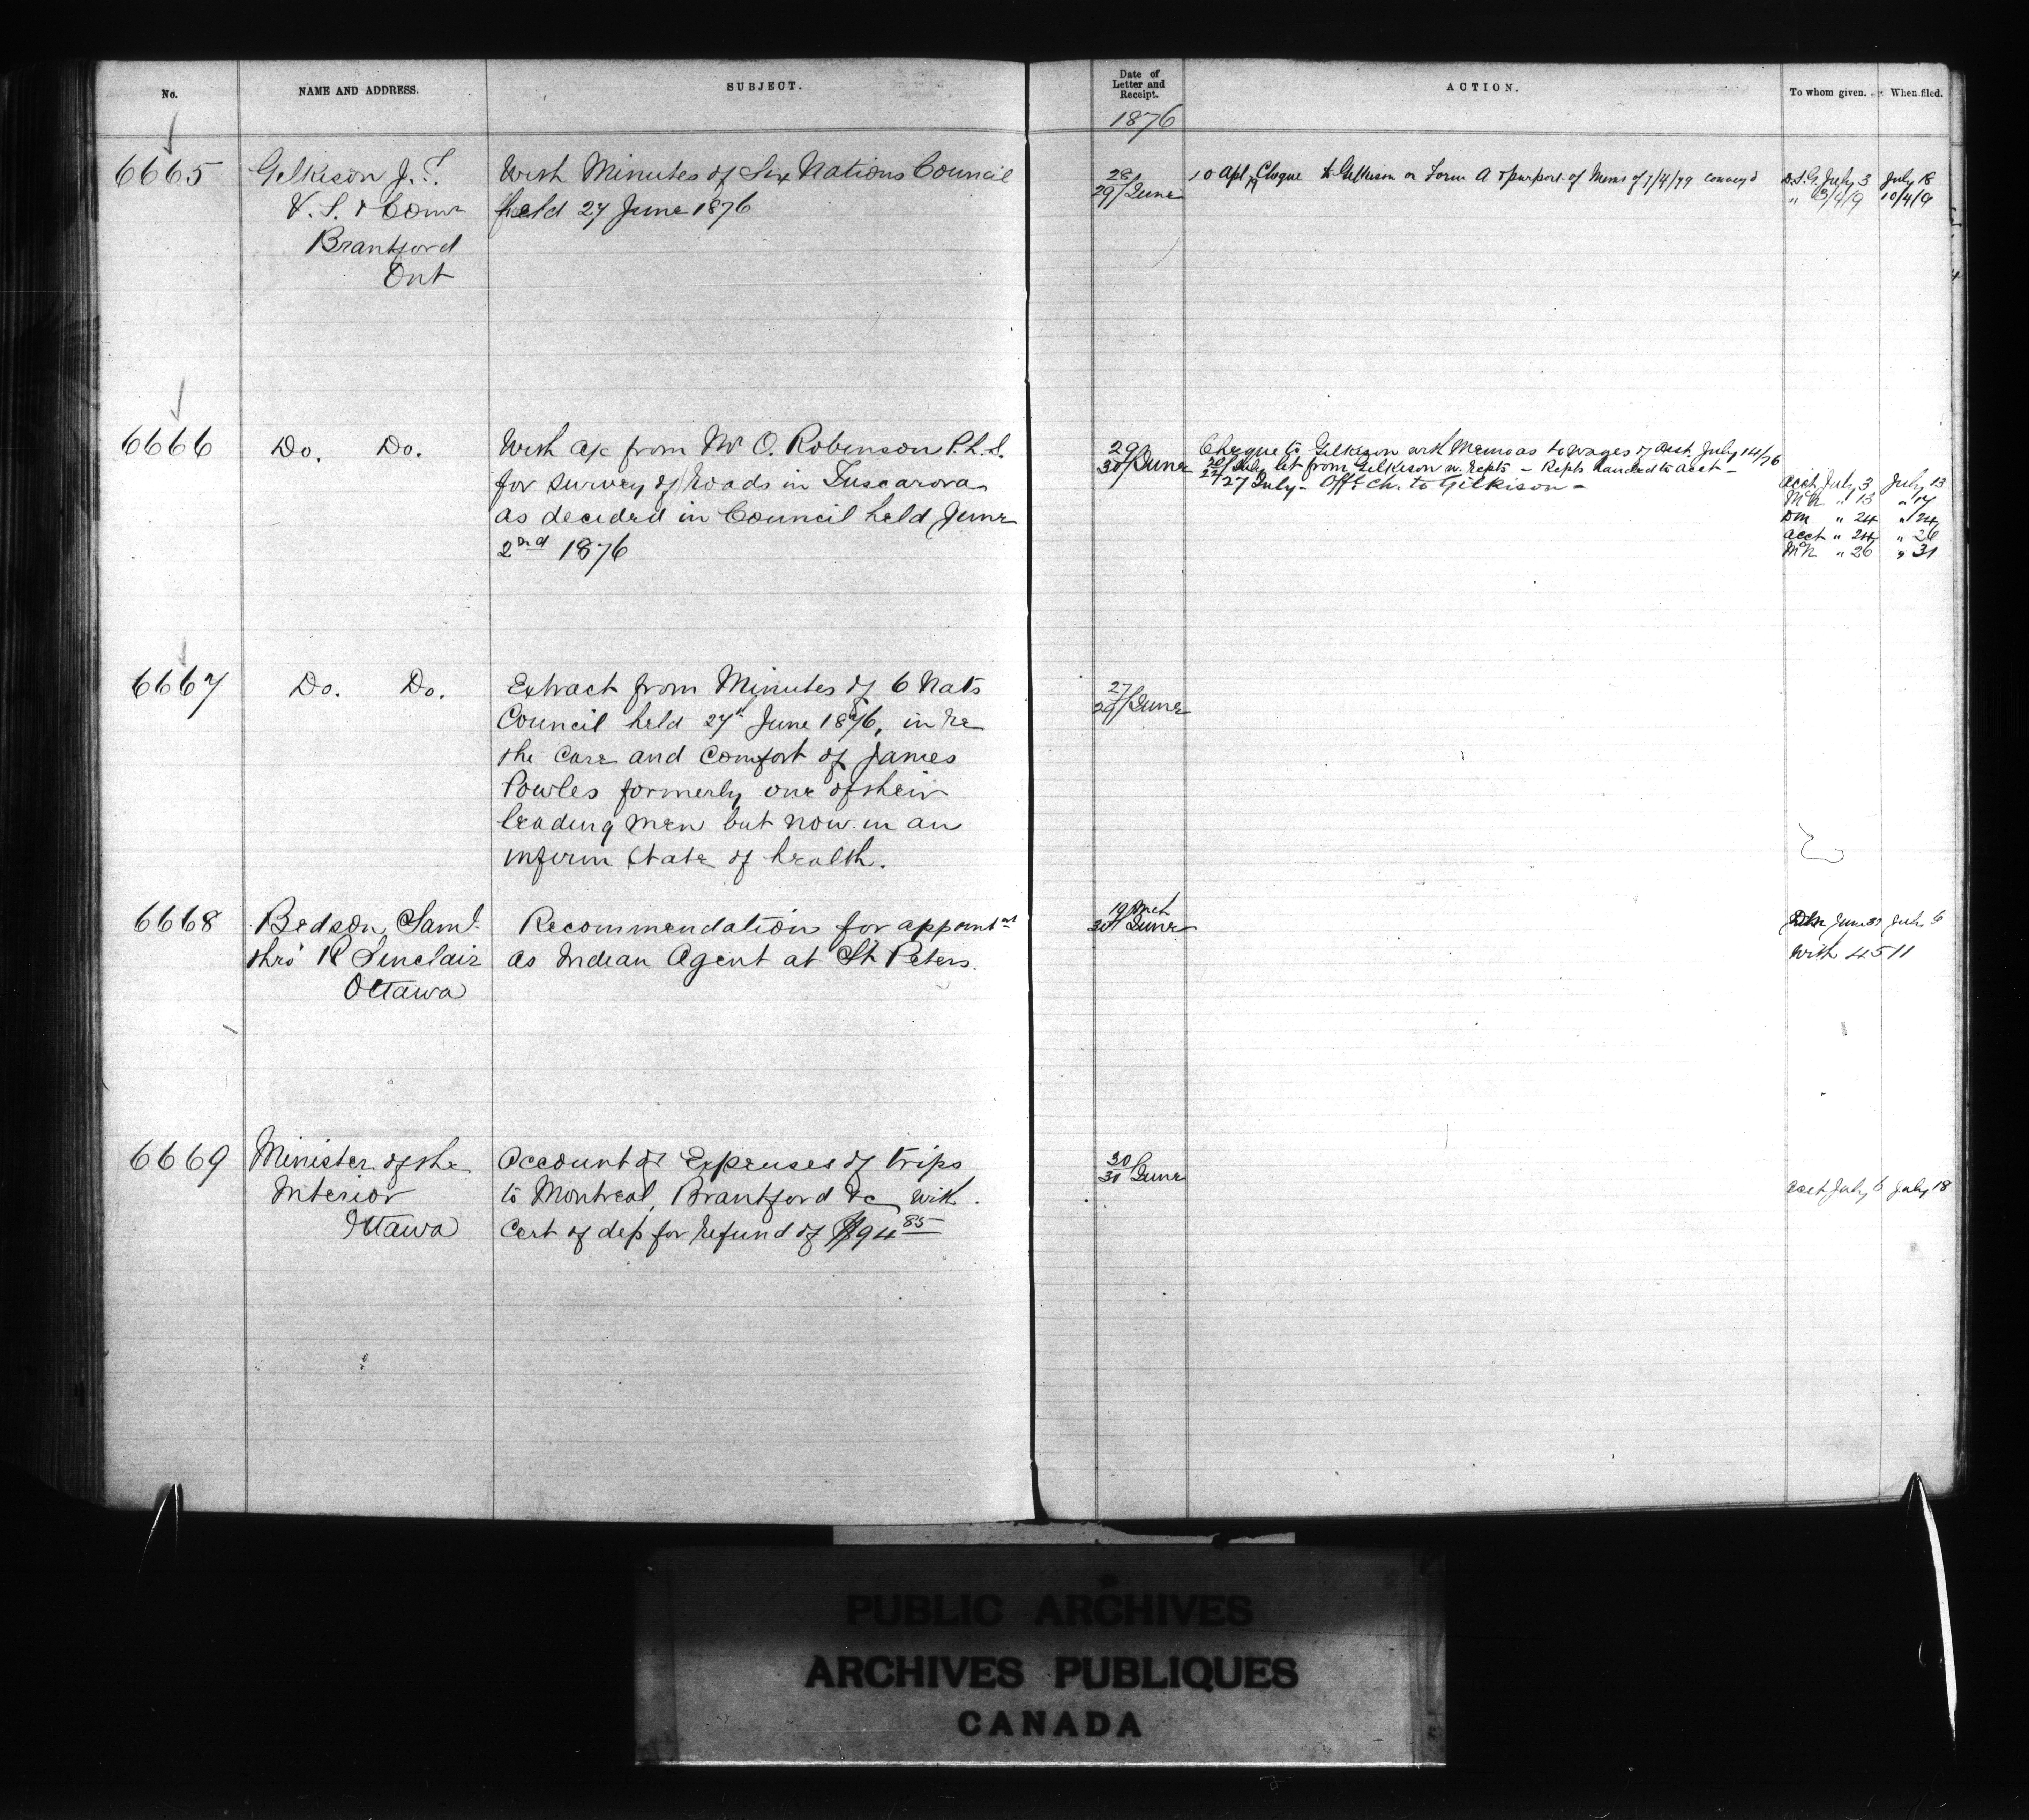 No.
NAME AND ADDRESS.
SUBJECT.
Date of
Letter and
Receipt.
ACTION.
To whom given.
When filed.
1876
6665
Gilkison J. T.
V. S. & Comr
Brantford
Ont
With Minutes of Six Nations Council
held 27 June 1876
28
29/June
10 Apl 79 Cheque to Gilkison on Form A & purport of Memo of 7/4/79 convey'd
D.S.G. July 3 July 18
" 10/4/9
6666
Do. Do.
With a/c from Mr O. Robinson P.L.S.
for survey of Roads in Tuscarora
as decided in Council held June
2nd 1876
29
30/June
Cheque to Gilkison with Memo as to wages of Asst. July 14/76
20/22 July let from Gilkison w. Repts - Repts handed to Acct -
27 July - Off: Ch. to Gilkison -
Acct July 3 July 13
McN " 13 " 17
DM " 24 " 24
Acct " 24 " 26
McN " 26 " 31
6667
Do. Do.
Extract from Minutes of 6 Nats
Council held 27th June 1876, in re
the care and comfort of James
Powles formerly one of their
leading men but now in an
infirm state of health.
27
29/June
6668
Bedson Saml
thro' R Sinclair
Ottawa
Recommendation for appointmt
as Indian Agent at St Peters.
19 Mch
30 June
June 30 July 6
With 4511
6669
Minister of the
Interior
Ottawa
Account of Expenses of trips
to Montreal, Brantford &c with
Cert of dep for refund of $94 85
30
30/June
Acct July 6 July 18
PUBLIC ARCHIVES
ARCHIVES PUBLIQUES
CANADA